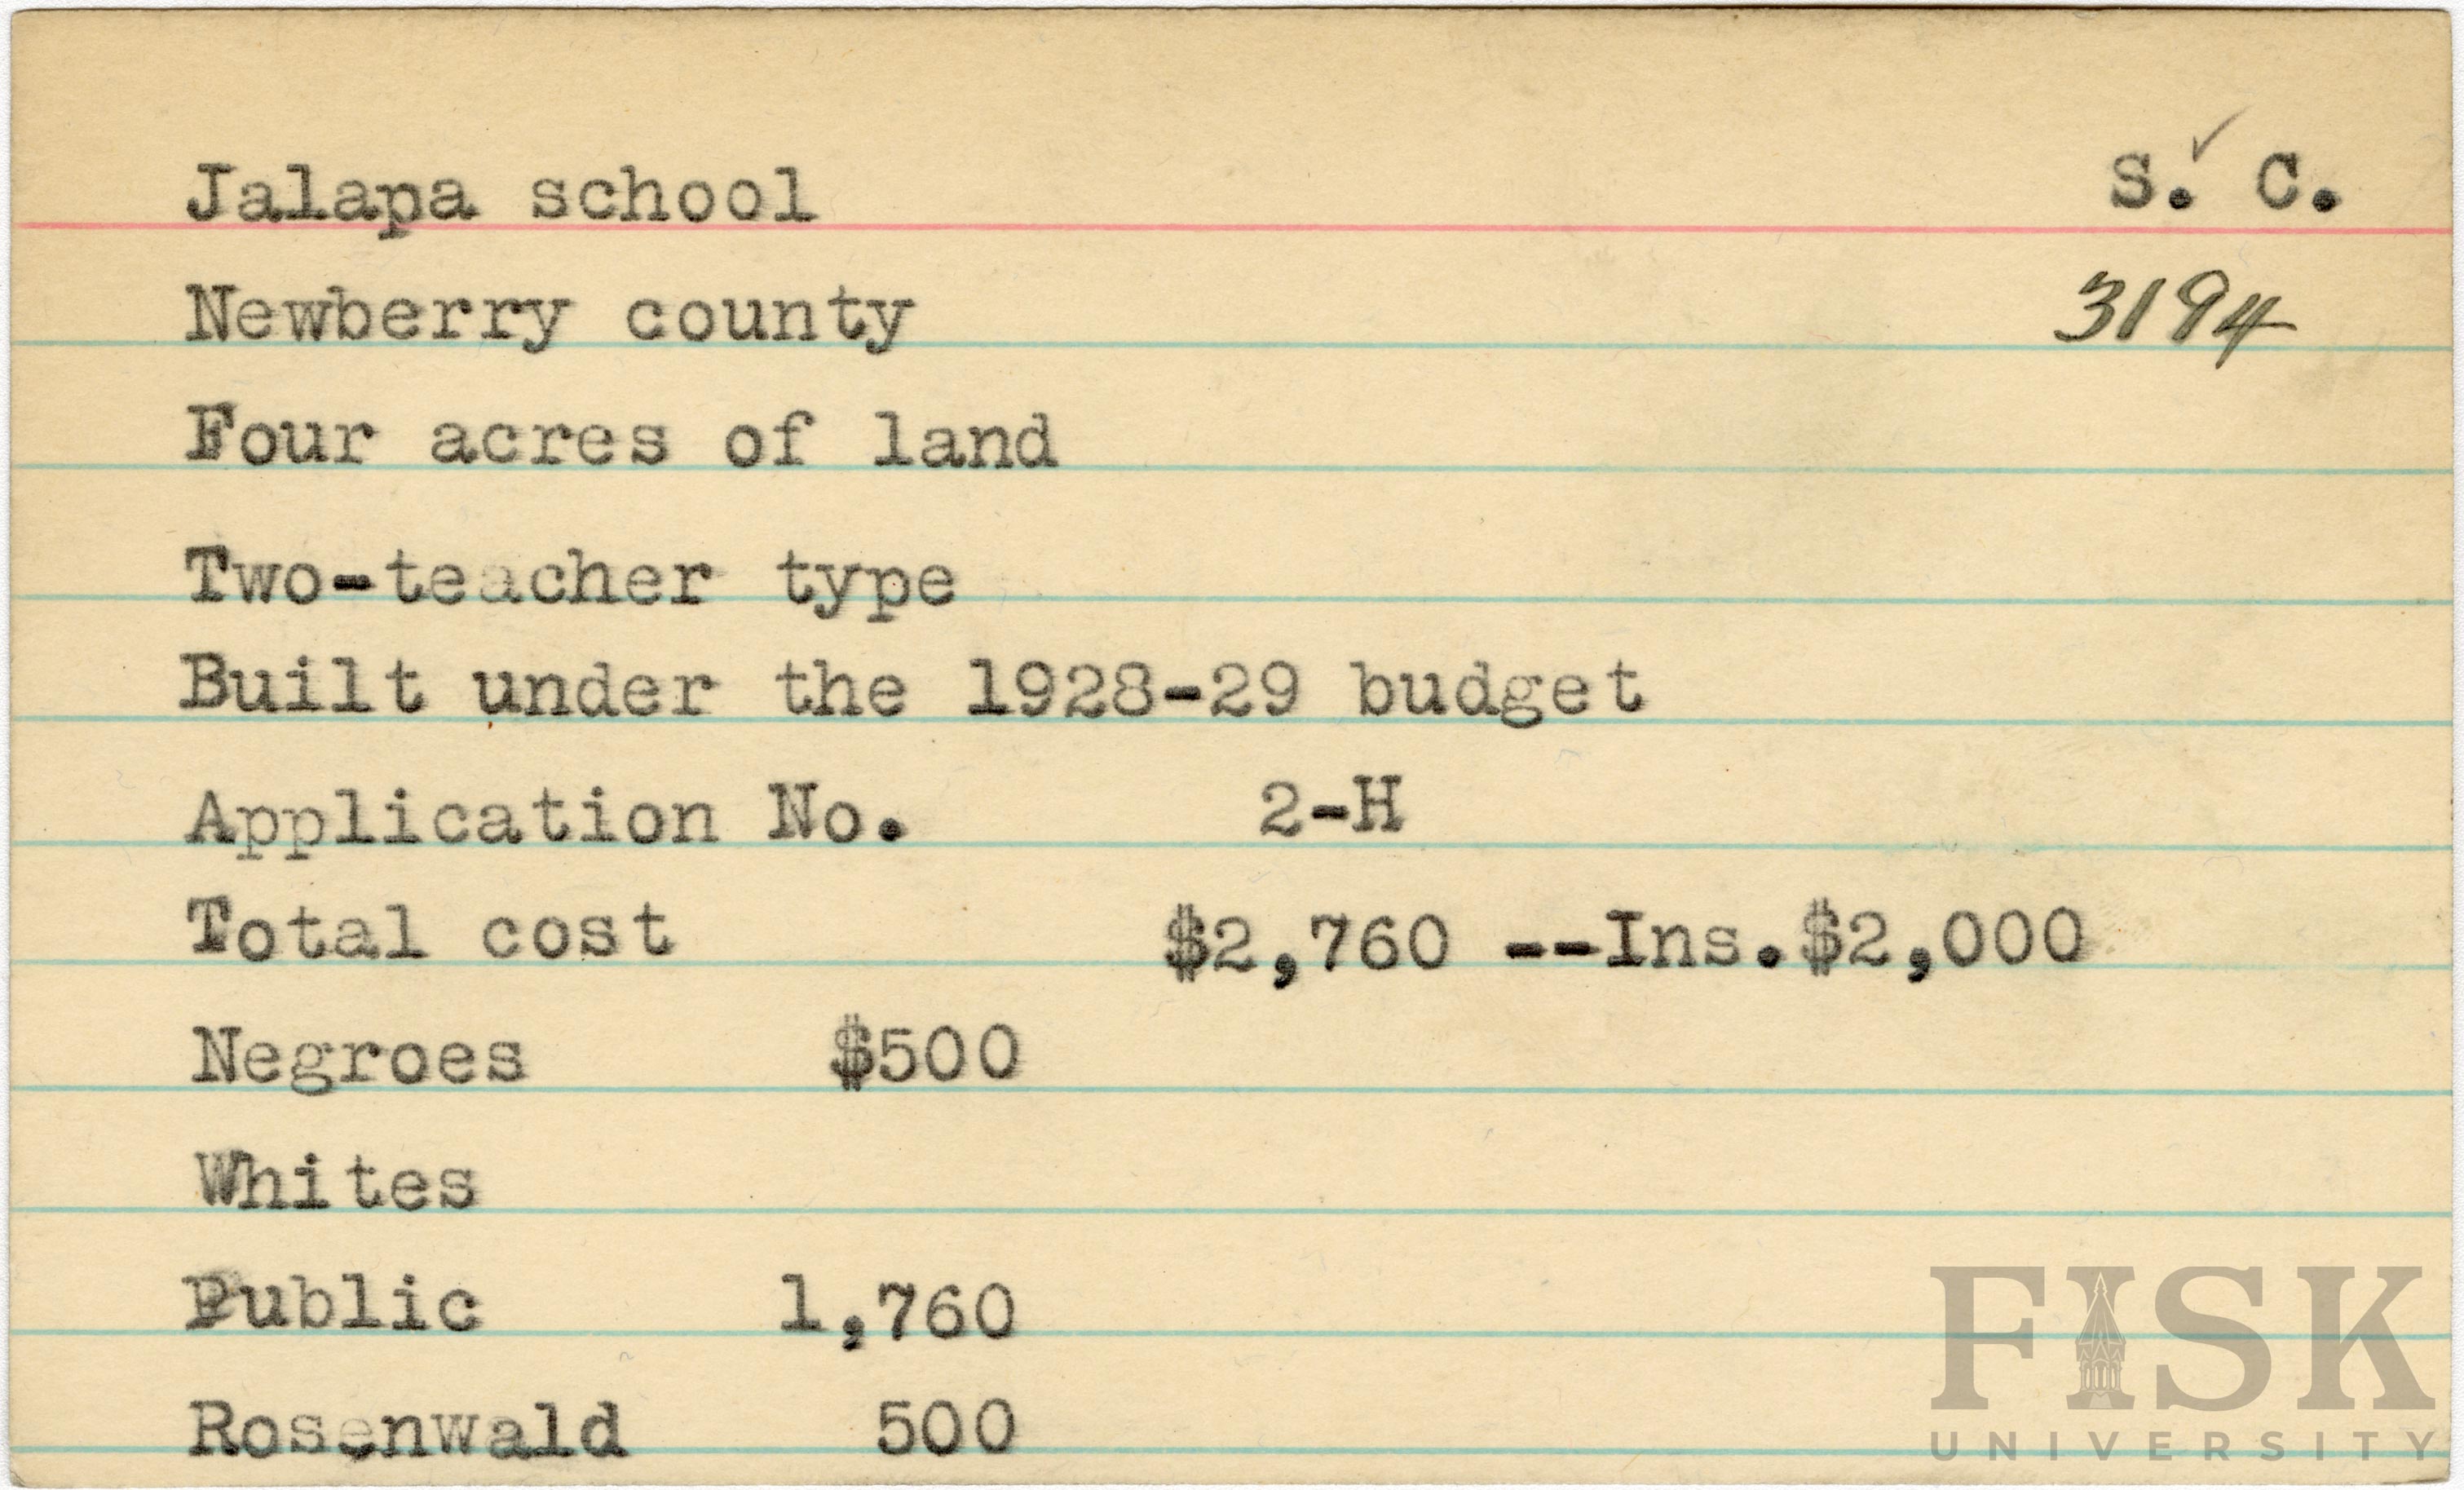 Jalapa school S. C.
Newberry county 3194
Four acres of land
Two-teacher type
Built under the 1928-29 budget
Application No. 2-H
Total cost $2,760 --Ins.$2,000
Negroes $500
Whites
Public 1,760
Rosenwald 500
FISK
UNIVERSITY